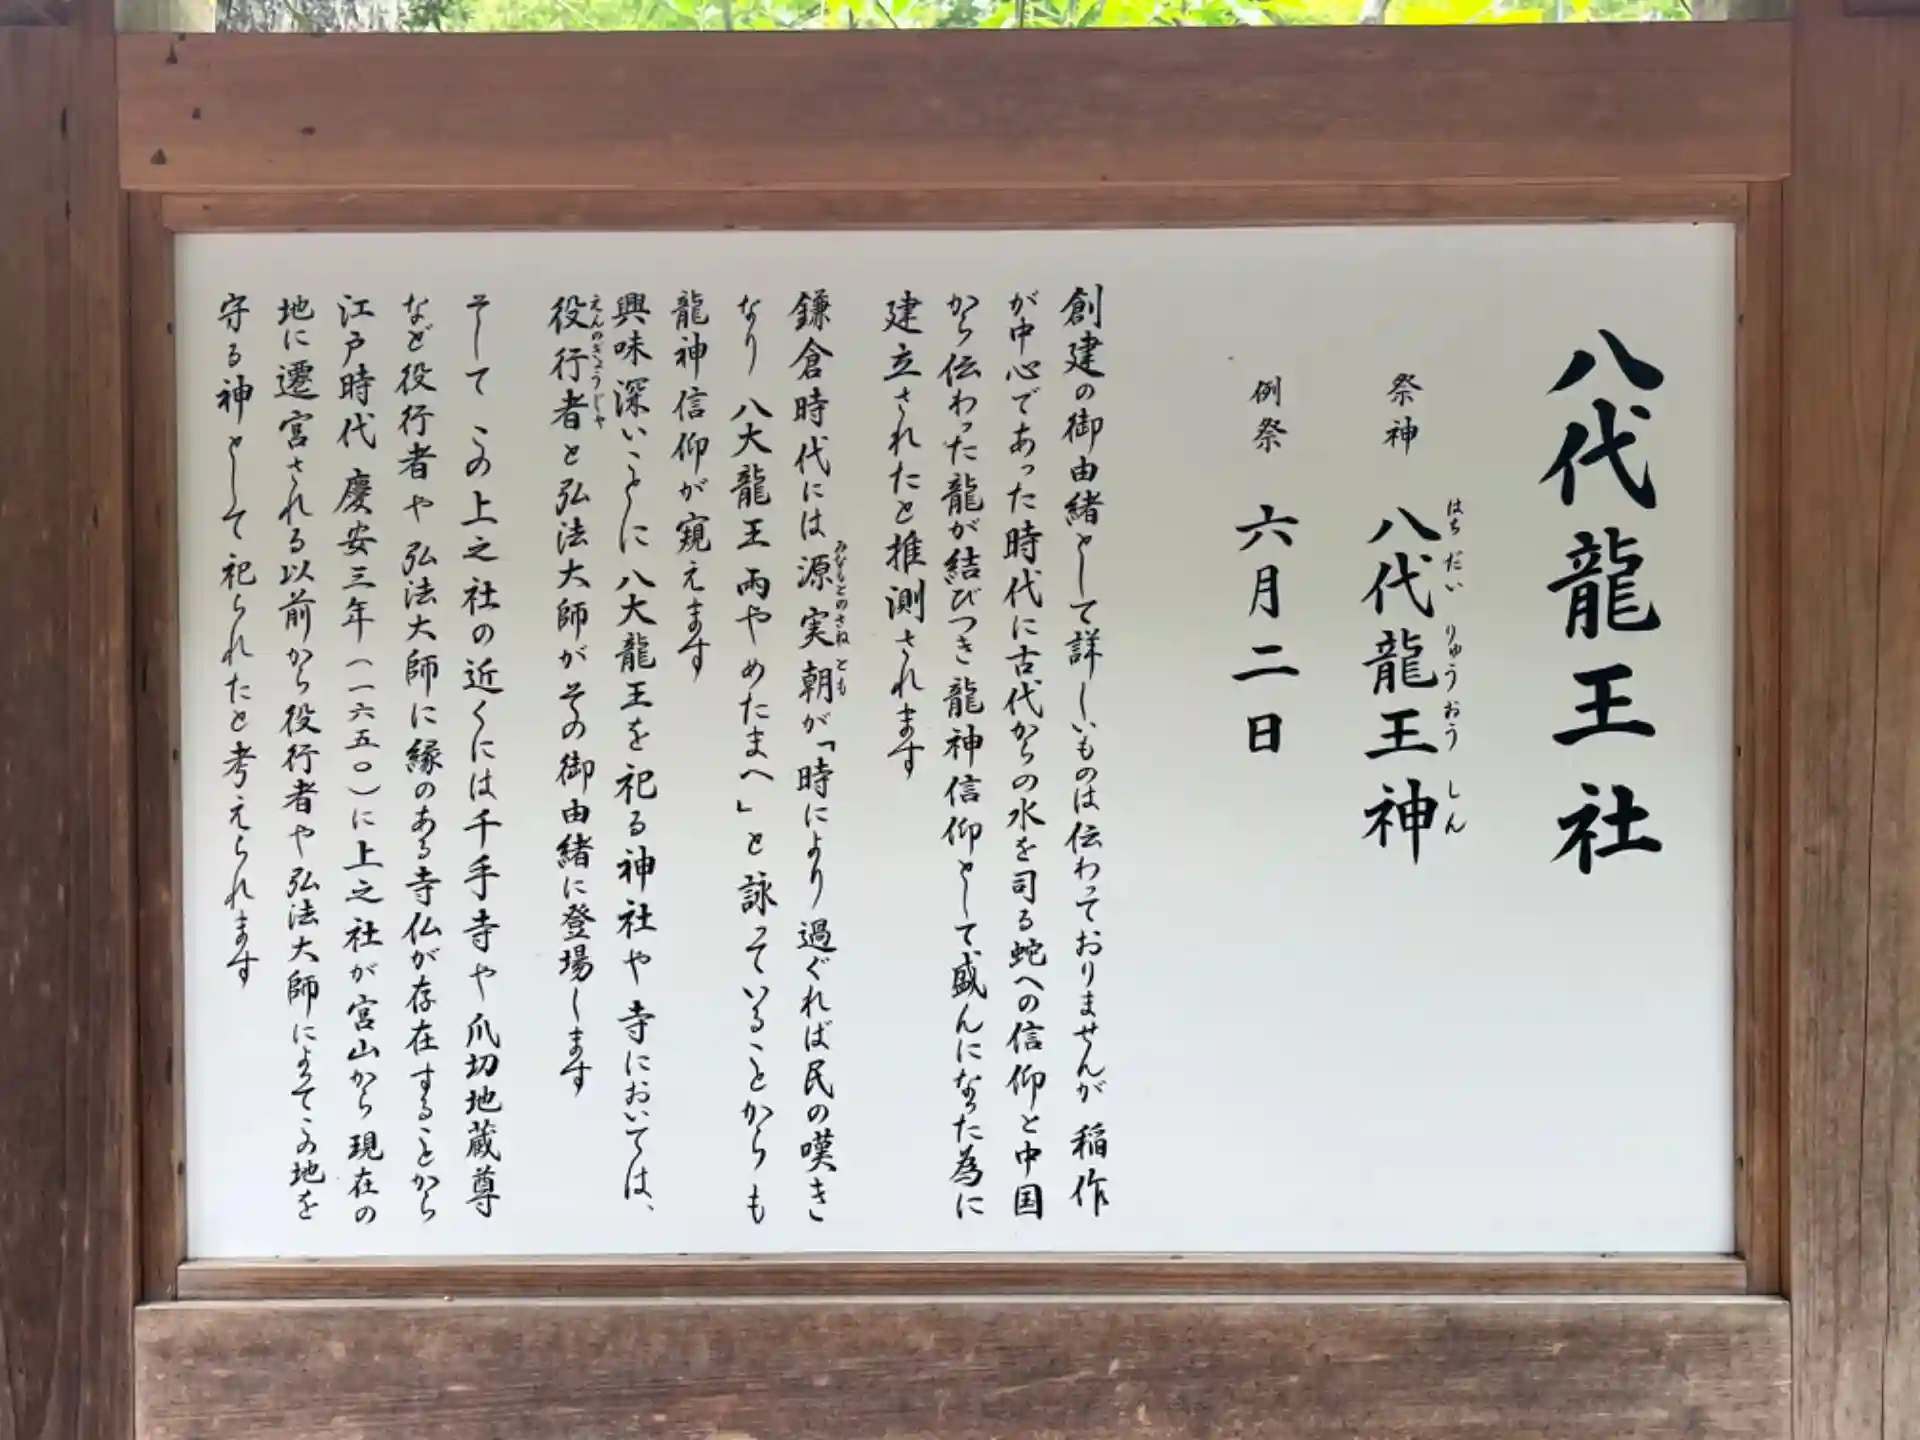 八代龍王社
祭神 八代龍王神
はちだいりゅうおうしん
例祭 六月二日
創建の御由緒として詳しいものは伝わっておりませんが 稲作
が中心であった時代に古代からの水を司る蛇への信仰と中国
から伝わった龍が結びつき龍神信仰として、盛んになった為に
建立されたと推測されます
鎌倉時代には源実朝が「時により過ぐれば民の嘆き
みなもとのさねとも
なり 八大龍王 雨やめたまへ」と詠っていることからも
龍神信仰が窺えます
興味深いことに八大龍王を祀る神社や寺においては、
役行者と弘法大師がその御由緒に登場します
えんのぎょうじゃ
そして この上之社の近くには千手寺や爪切地蔵尊
など役行者や弘法大師に縁のある寺仏が存在することから
江戸時代 慶安三年(一六五〇)に上之社が宮山から現在の
地に遷宮される以前から役行者や弘法大師によってこの地を
守る神として祀られたと考えられます